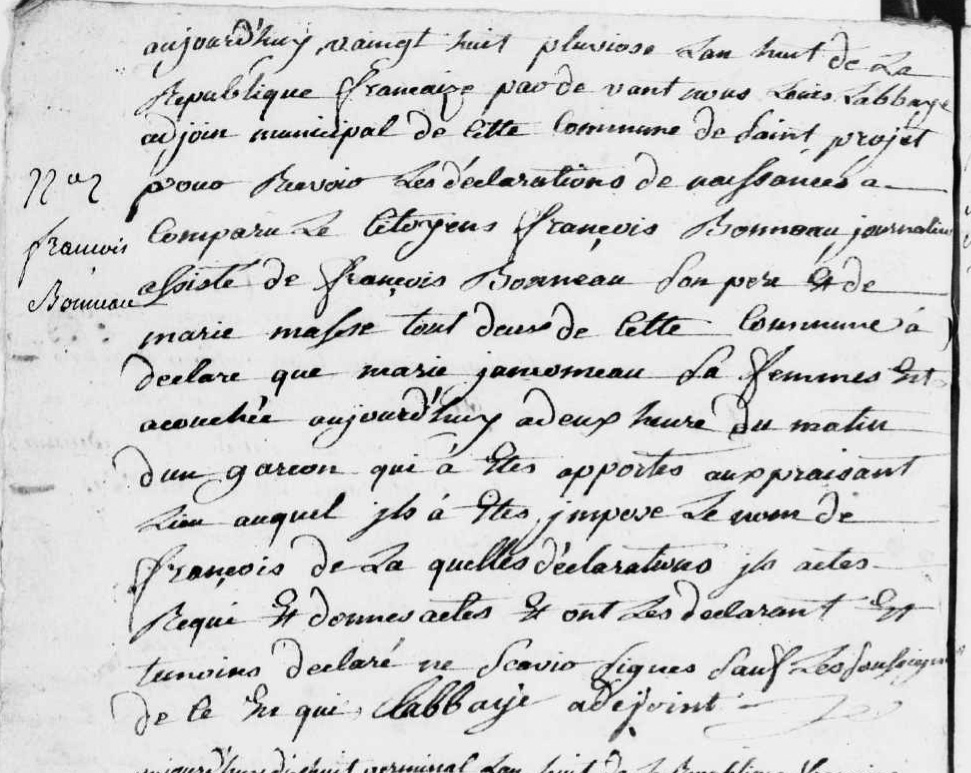 aujourd'huy vaingt huit pluviose Lan huit de La
Republique francaize par de vant nous Louis Labbaye
adjoin municipal de Cette Commune de Saint projet
pour Recevoir Les déclarations de naissances a
Comparu Le Citoyens françois Bonneau journalier
assisté de françois Bonneau Son pere Et de
marie masse tout deux de Cette Commune à
declare que marie jamoneau Sa femmes Est
acouchée aujourd'huy a deux heure du matin
dun garcon qui à Etes apportes aux praisant
Lieu auquel jls à Etes jmpose Le nom de
françois de La quelles déclarations jls actes
Requi Et donnes actes Et ont Les declarant Et
temoins declaré ne Scavoir Signes Sauf Les Soussignes
de Ce En quis Labbaye adejoint
françois
Bonneau
aujourd'huy dixhuit germinal Lan huit de La Republique